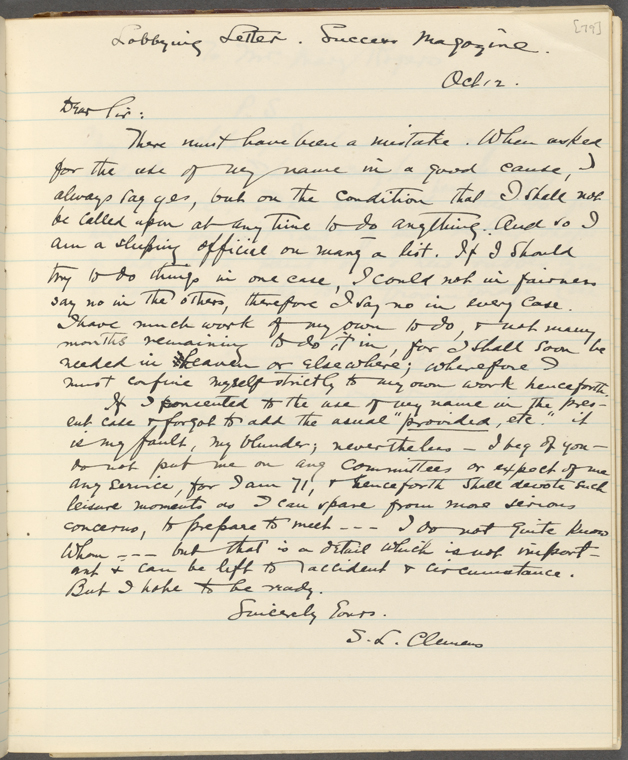 [79]
Lobbying Letter. Success Magazine.
Oct 12.
Dear Sir:
There must have been a mistake. When asked
for the use of my name in a good cause, I
always say yes, but on the condition that I shall not
be called upon at any time to do anything. And so I
am a sleeping official on many a list. If I should
try to do things in one case, I could not in fairness
say no in the others, therefore I say no in every case.
I have much work of my own to do, & not many
months remaining to do it in, for I shall soon be
needed in heaven or elsewhere; wherefore I
must confine myself strictly to my own work henceforth.
If I consented to the use of my name in the pres-
ent case & forgot to add the usual "provided, etc." it
is my fault, my blunder; nevertheless — I beg of you —
do not put me on any committees or expect of me
any service, for I am 71, & henceforth shall devote such
leisure moments as I can spare from more serious
concerns, to prepare to meet --- I do not quite know
whom --- but that is a detail which is not import-
ant & can be left to accident & circumstance.
But I hope to be ready.
Sincerely Yours.
S. L. Clemens